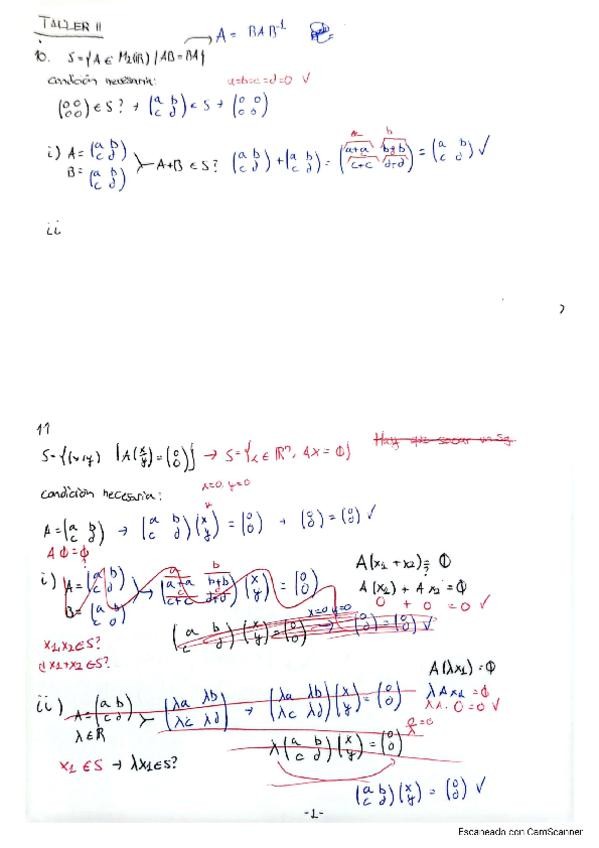 TALLER II
→ A = BAB⁻¹
10. S={A ∈ M₂(ℝ) / AB=BA}
condición necesaria: a=b=c=d=0 ✓
(0 0; 0 0) ∈ S? → (a b; c d) ∈ S → (0 0; 0 0)
a b
i) A=(a b; c d) B=(a b; c d) A+B ∈ S? (a b; c d)+(a b; c d)=(a+a b+b; c+c d+d)=(a b; c d) ✓
ii
11
S={(x,y) | A(x y)=(0 0)} → S={x ∈ ℝⁿ, AX=Φ}
x=0, y=0
condición necesaria:
A=(a b; c d) → (a b; c d)(x y)=(0 0) → (0 0)=(0 0) ✓
AΦ=Φ
a b
A(x₁+x₂)=Φ
i) A=(a b; c d) B=(a b; c d) → (a+a b+b; c+c d+d)(x y)=(0 0)
A(x₁)+Ax₂=Φ
0 + 0 = 0 ✓
x=0 y=0
(a b; c d)(x y)=(0 0) → (0 0)=(0 0) ✓
x₁,x₂∈S?
x₁+x₂∈S?
A(λx₁)=Φ
ii) A=(a b; c d) λ∈ℝ → (λa λb; λc λd) → (λa λb; λc λd)(x y)=(0 0)
λAx₁=Φ
λ. 0=0 ✓
0/λ=0
λ(a b; c d)(x y)=(0 0)
x₁∈S → λx₁∈S?
(a b; c d)(x y)=(0 0) ✓
-1-
Escaneado con CamScanner